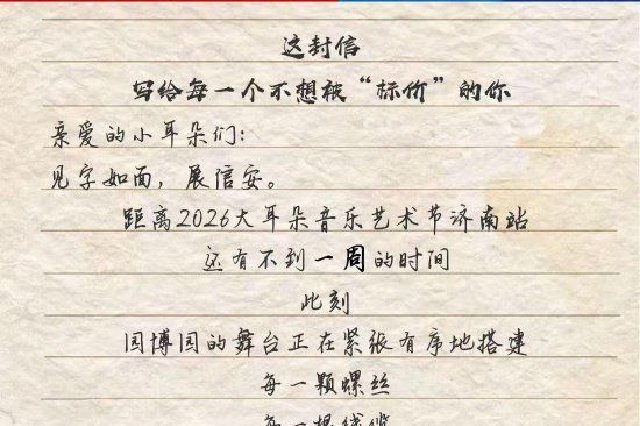 这封信
写给每一个不想被“标价”的你
亲爱的小耳朵们：
见字如面，展信安。
距离2026大耳朵音乐艺术节济南站
还有不到一周的时间
此刻
园博园的舞台正在紧张有序地搭建
每一颗螺丝
每一根线缆